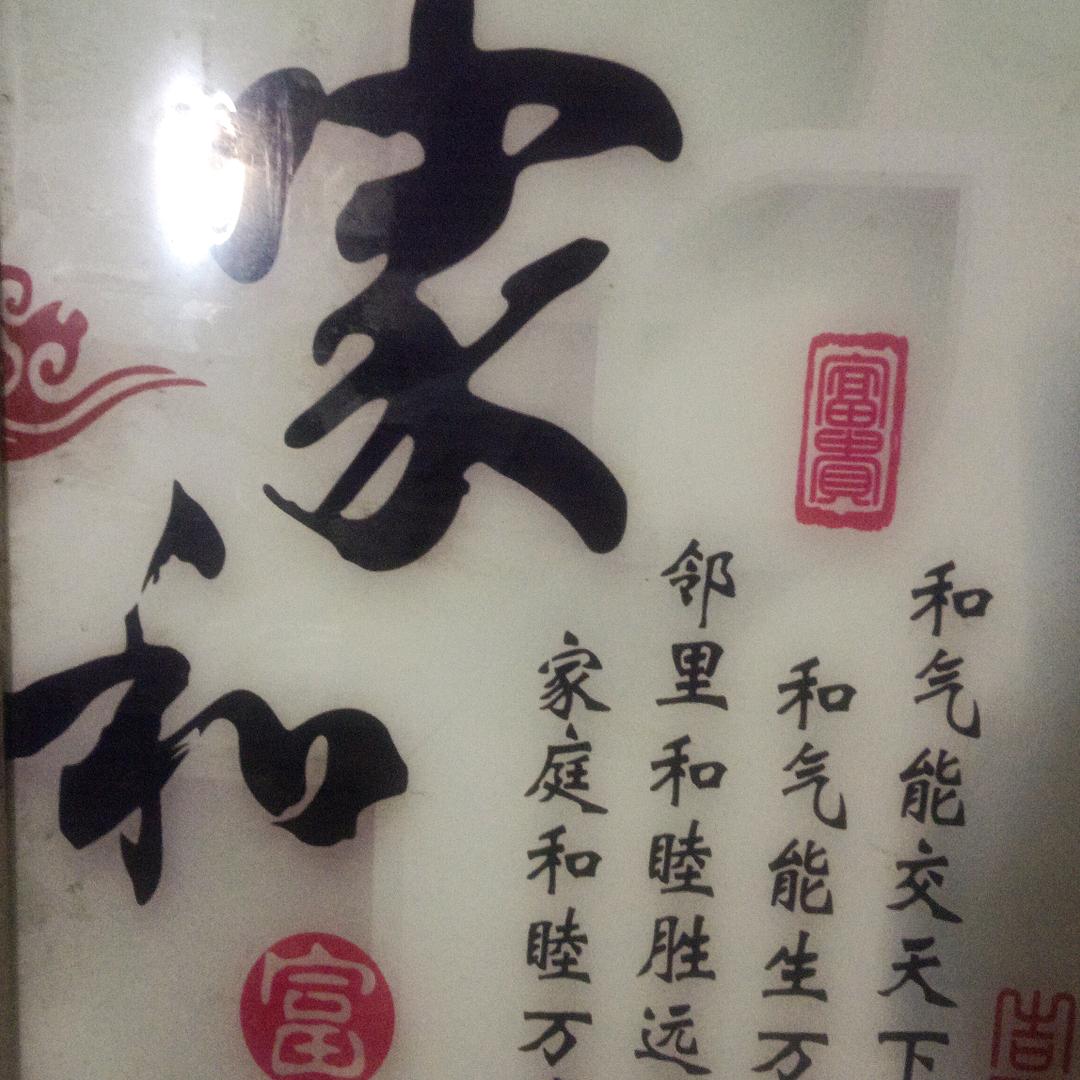 家和
富貴
和气能交天下
和气能生万
邻里和睦胜远
家庭和睦万
富
吉